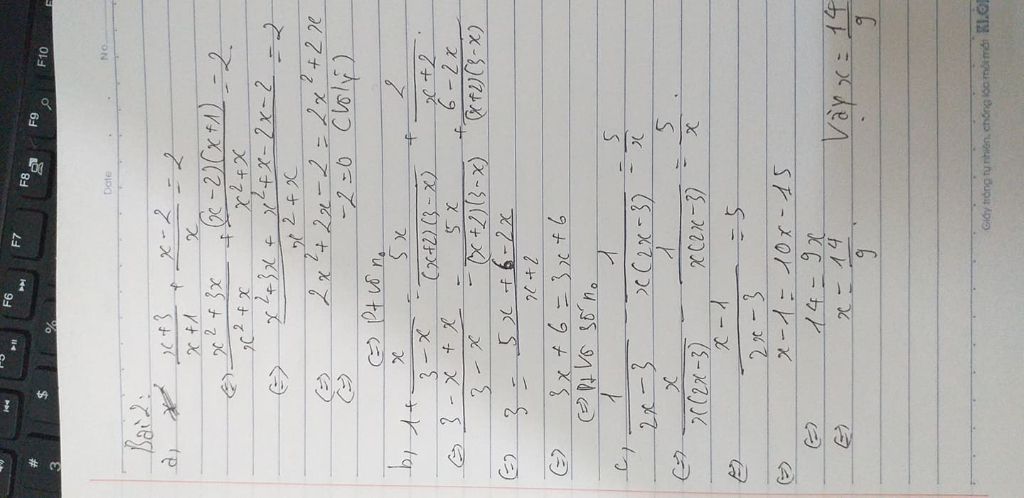 No.
Date
Bài 2:
a, (x+3)/(x+1) + (x-2)/x = 2
(=) (x²+3x)/(x²+x) + (x-2)(x+1)/(x²+x) = 2
(=) (x²+3x+x²+x-2x-2)/(x²+x) = 2
(=) 2x²+2x-2 = 2x²+2x
(=) -2=0 (Vô lý)
(=) Pt vô n₀
b, 1 + x/(3-x) = 5x/((x+2)(3-x)) + 2/(x+2).
(=) (3-x+x)/(3-x) = 5x/((x+2)(3-x)) + (6-2x)/((x+2)(3-x))
(=) 3 = (5x+6-2x)/(x+2)
(=) 3x+6=3x+6
(=) Pt vô số n₀
c, 1/(2x-3) - 1/(x(2x-3)) = 5/x
(=) x/(x(2x-3)) - 1/(x(2x-3)) = 5/x.
(=) (x-1)/(2x-3) = 5
(=) x-1=10x-15
(=) 14=9x
(=) x=14/9. Vậy x=14/9
Giấy trắng tự nhiên, chống lóa mỏi mắt
F5
F6
F7
F8
F9
F10
#
3
$
%